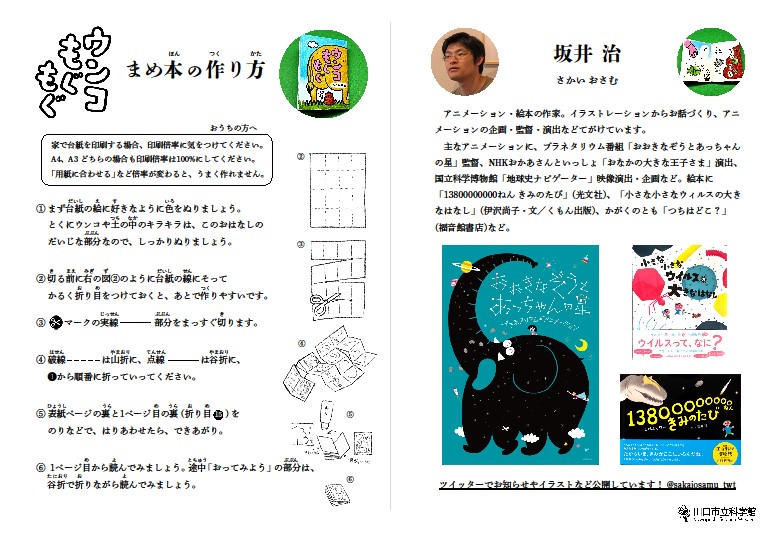 ウンコ
もぐ
もぐ
まめ本の作り方
ほん
つく
かた
おうちの方へ
家で台紙を印刷する場合、印刷倍率に気をつけてください。
A4、A3 どちらの場合も印刷倍率は100%にしてください。
「用紙に合わせる」など倍率が変わると、うまく作れません。
① まず台紙の絵に好きなように色をぬりましょう。
とくにウンコや土の中のキラキラは、このおはなしの
だいじな部分なので、しっかりぬりましょう。
② 切る前に右の図②のように台紙の線にそって
かるく折り目をつけておくと、あとで作りやすいです。
③ マークの実線 ――― 部分をまっすぐ切ります。
④ 破線------は山折に、点線 ――― は谷折に、
❶から順番に折っていってください。
⑤ 表紙ページの裏と1ページ目の裏 (折り目⓯) を
のりなどで、はりあわせたら、できあがり。
⑥ 1ページ目から読んでみましょう。途中「おってみよう」の部分は、
谷折で折りながら読んでみましょう。
②
③
④
⑤
⑥
坂井 治
さかい おさむ
アニメーション・絵本の作家。イラストレーションからお話づくり、アニ
メーションの企画・監督・演出などてがけています。
主なアニメーションに、プラネタリウム番組「おおきなぞうとあっちゃん
の星」監督、NHKおかあさんといっしょ「おなかの大きな王子さま」演出、
国立科学博物館「地球史ナビゲーター」映像演出・企画など。絵本に
「13800000000ねん きみのたび」(光文社)、「小さな小さなウィルスの大き
なはなし」(伊沢尚子・文／くもん出版)、かがくのとも「つちはどこ？」
(福音館書店)など。
おおきなぞうと
あっちゃんの星
小さな
小さな
ウイルスの
大きなはなし
ウイルスって、なに？
13800000000ねん
きみのたび
ツイッターでお知らせやイラストなど公開しています！ @sakaiosamu_twt
川口市立科学館